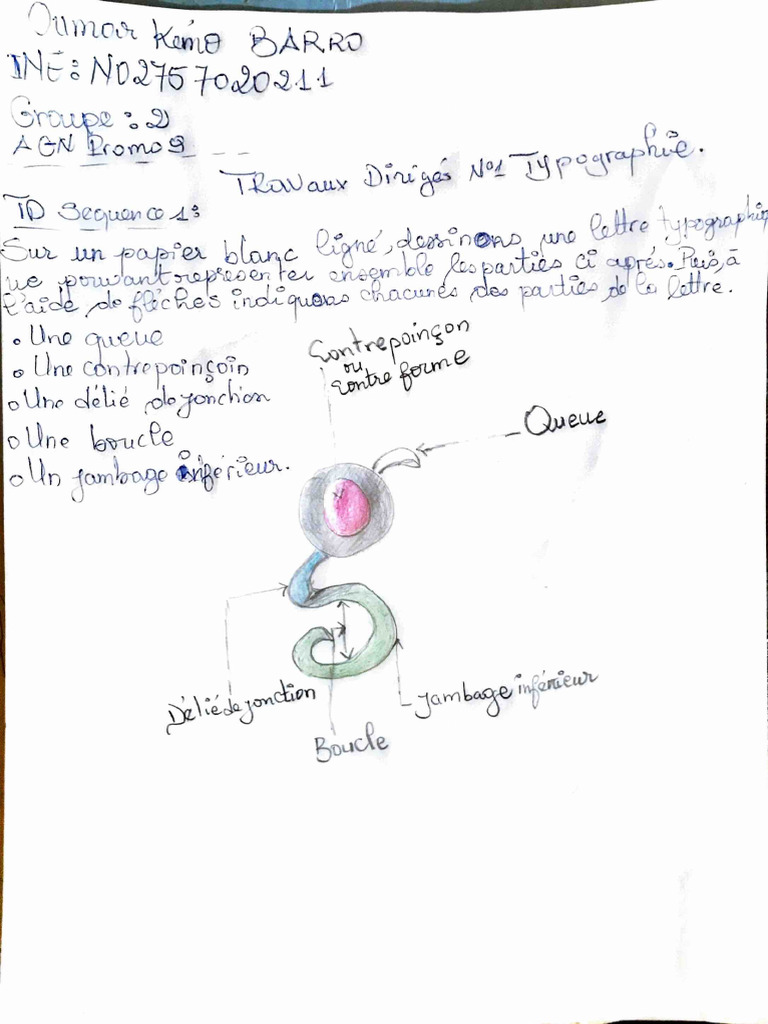 Oumar Kémo BARRO
INE: N02757020211
Groupe: 2
AGN Promo 9
Travaux Dirigés N°1 Typographie.
TD Sequence 1:
Sur un papier blanc ligné, dessinons une lettre typographiq
ue pouvant representer ensemble les parties ci aprés. Puis, à
l'aide de flêches indiquons chacunes des parties de la lettre.
• Une queue
• Une contrepoinçoin
• Une délié de jonction
• Une boucle
• Un jambage inférieur.
Contrepoinçon
ou
contre forme
Queue
Délié de jonction
Jambage inférieur
Boucle